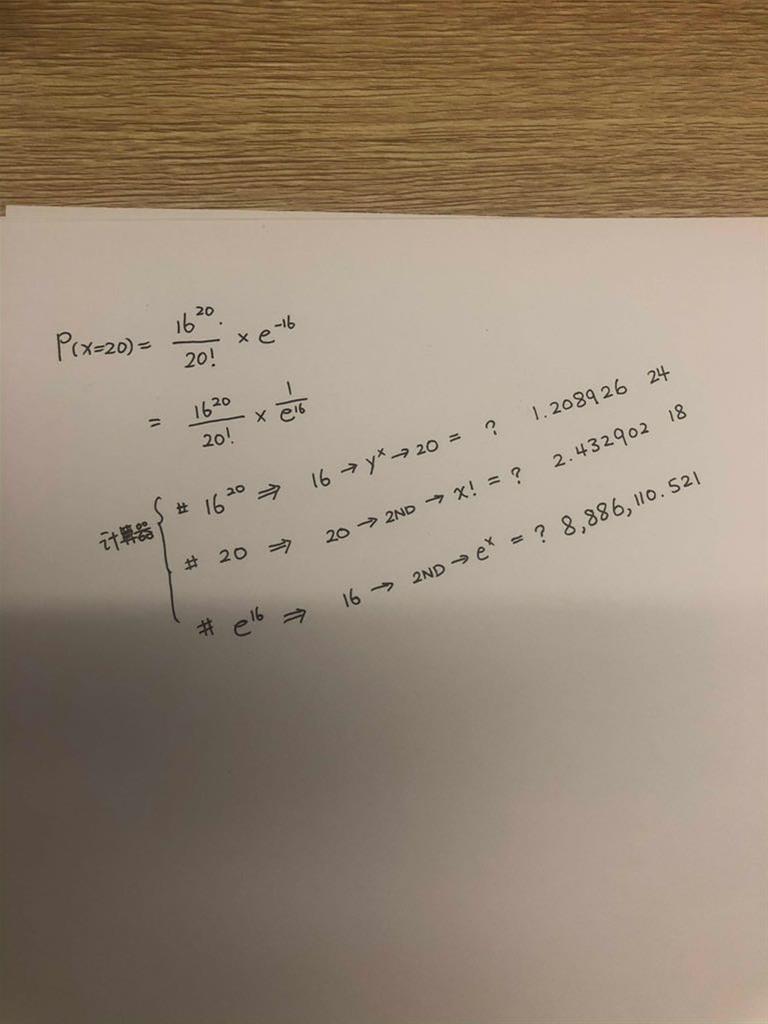 P(x=20) = 16^20. / 20! × e^-16
= 16^20 / 20! × 1 / e^16
计算器 { # 16^20 ⇒ 16 → y^x → 20 = ? 1.208926 24
# 20 ⇒ 20 → 2ND → x! = ? 2.432902 18
# e^16 ⇒ 16 → 2ND → e^x = ? 8,886,110.521